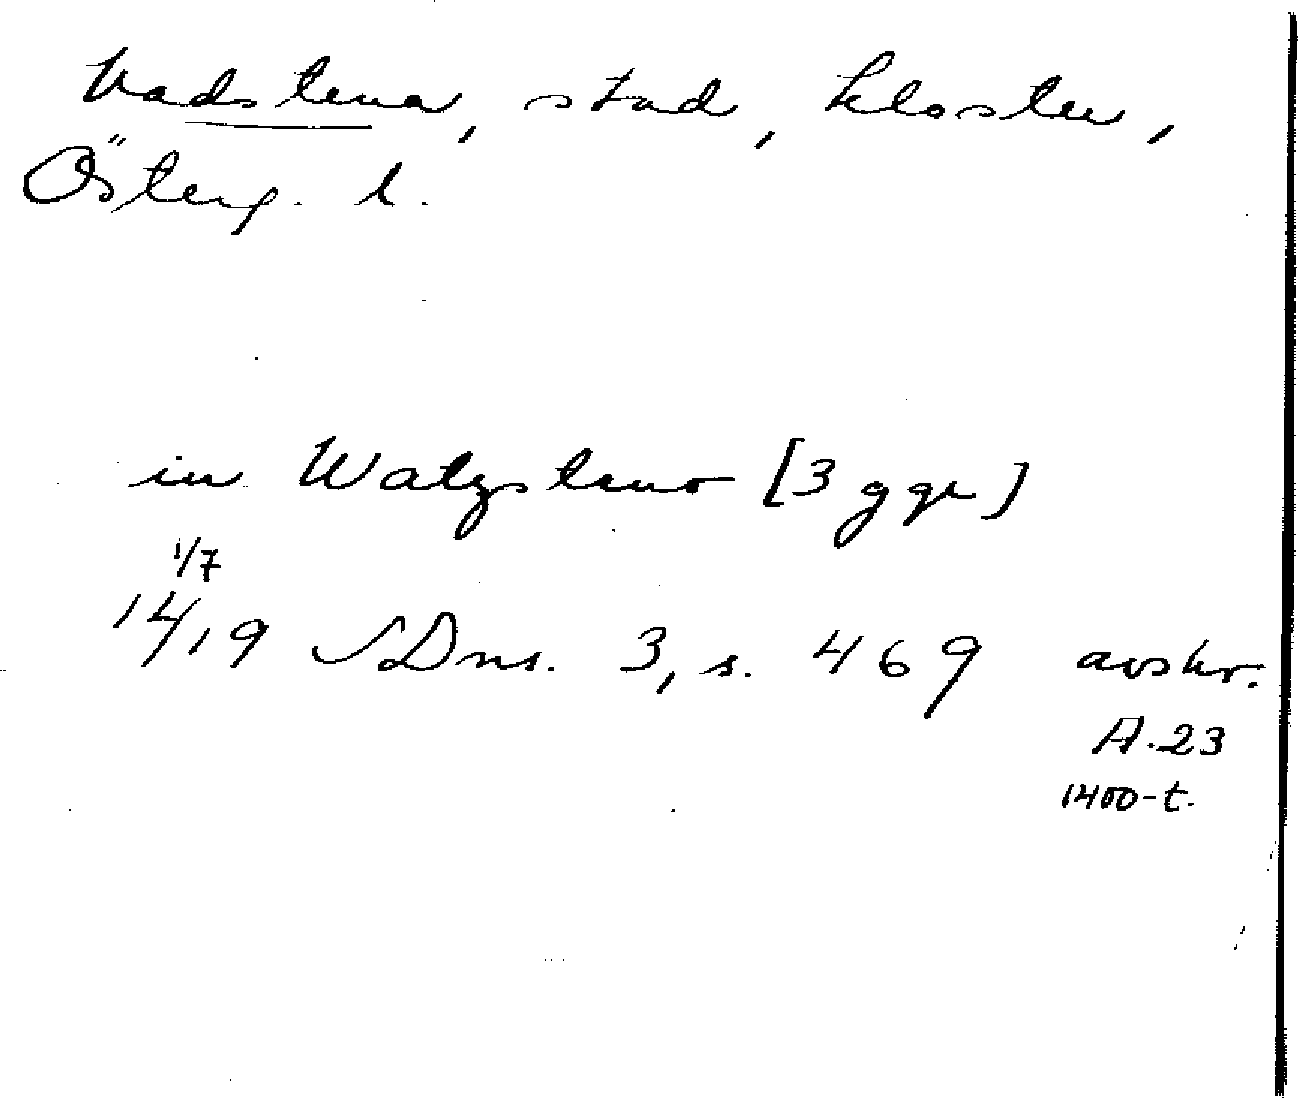 Vadstena, stad, kloster,
Österg. l.
in Watzsteno [3 ggr]
1/7
1419 SDns. 3, s. 469 avskr.
A.23
1400-t.